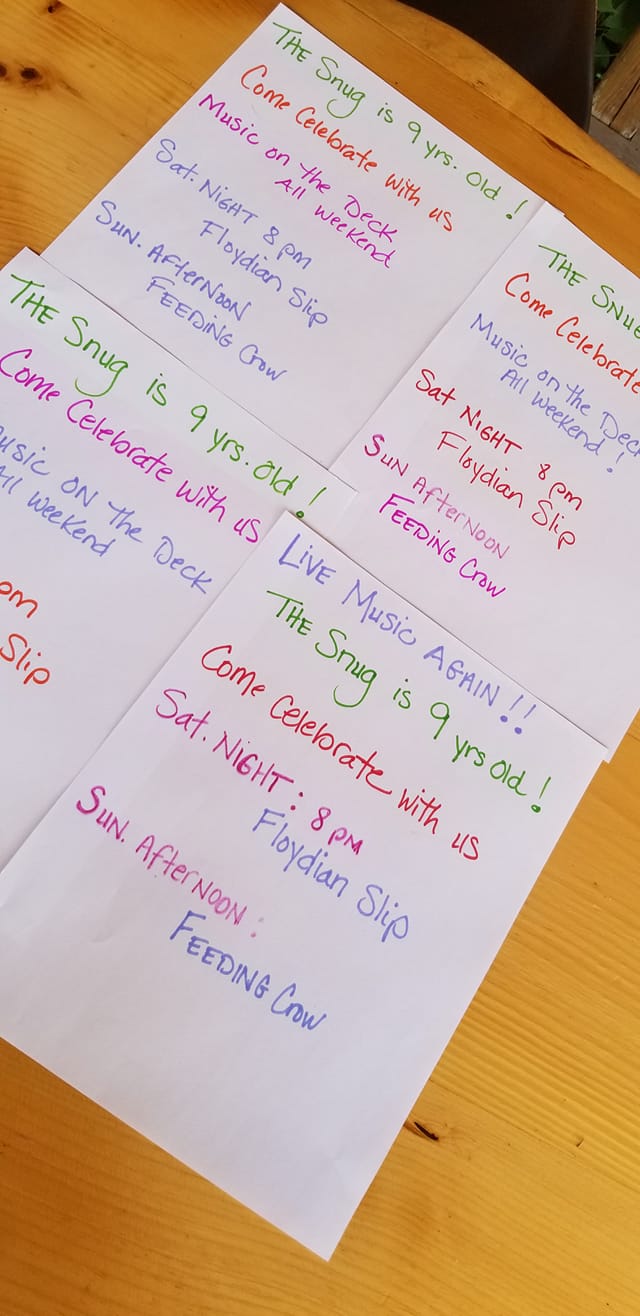 THE Snug is 9 yrs. old!
Come Celebrate with us
Music on the Deck
All weekend
Sat. NIGHT 8 pm
Floydian Slip
Sun. AFTERNOON
FEEDING Crow
THE SNUG
Come Celebrate
Music on the Deck
All weekend!
Sat NIGHT 8 pm
Floydian Slip
SUN AFTERNOON
FEEDING Crow
THE Snug is 9 yrs. old!
Come Celebrate with us
Music ON the Deck
All weekend
pm
Slip
LIVE Music AGAIN!!
THE Snug is 9 yrs old!
Come Celebrate with us
Sat. NIGHT: 8 PM
Floydian Slip
SUN. AFTERNOON:
FEEDING Crow